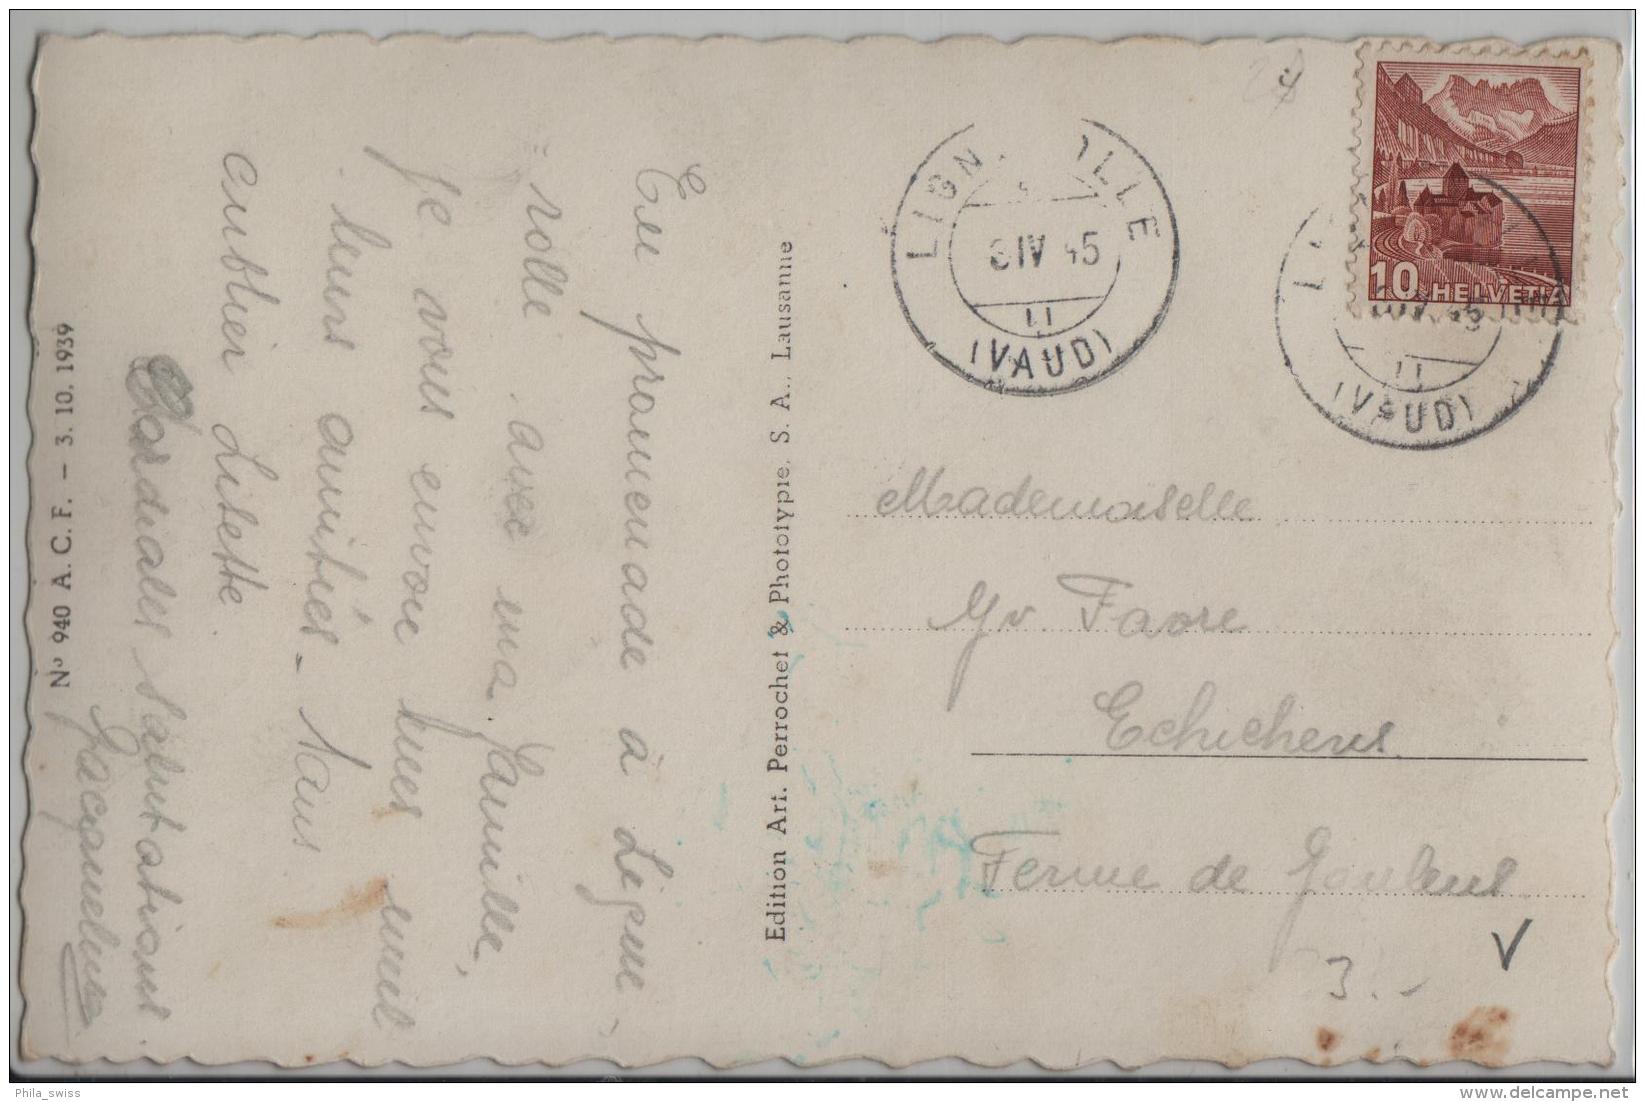 En promenade à Ligne-
rolle avec ma famille,
je vous envoie mes meil
leurs amitiés - sans
oublier Lisette
Cordiales salutations
Jacqueline
Nº 940 A. C. F. – 3. 10. 1939
Edition Art. Perrochet & Phototypie, S. A., Lausanne
LIGN OLLE
IV 45
(VAUD)
(VAUD)
10 HELVETIA
Mademoiselle
Yv. Favre
Echichens
Ferme de
3.-
Phila_swiss
www.delcampe.net